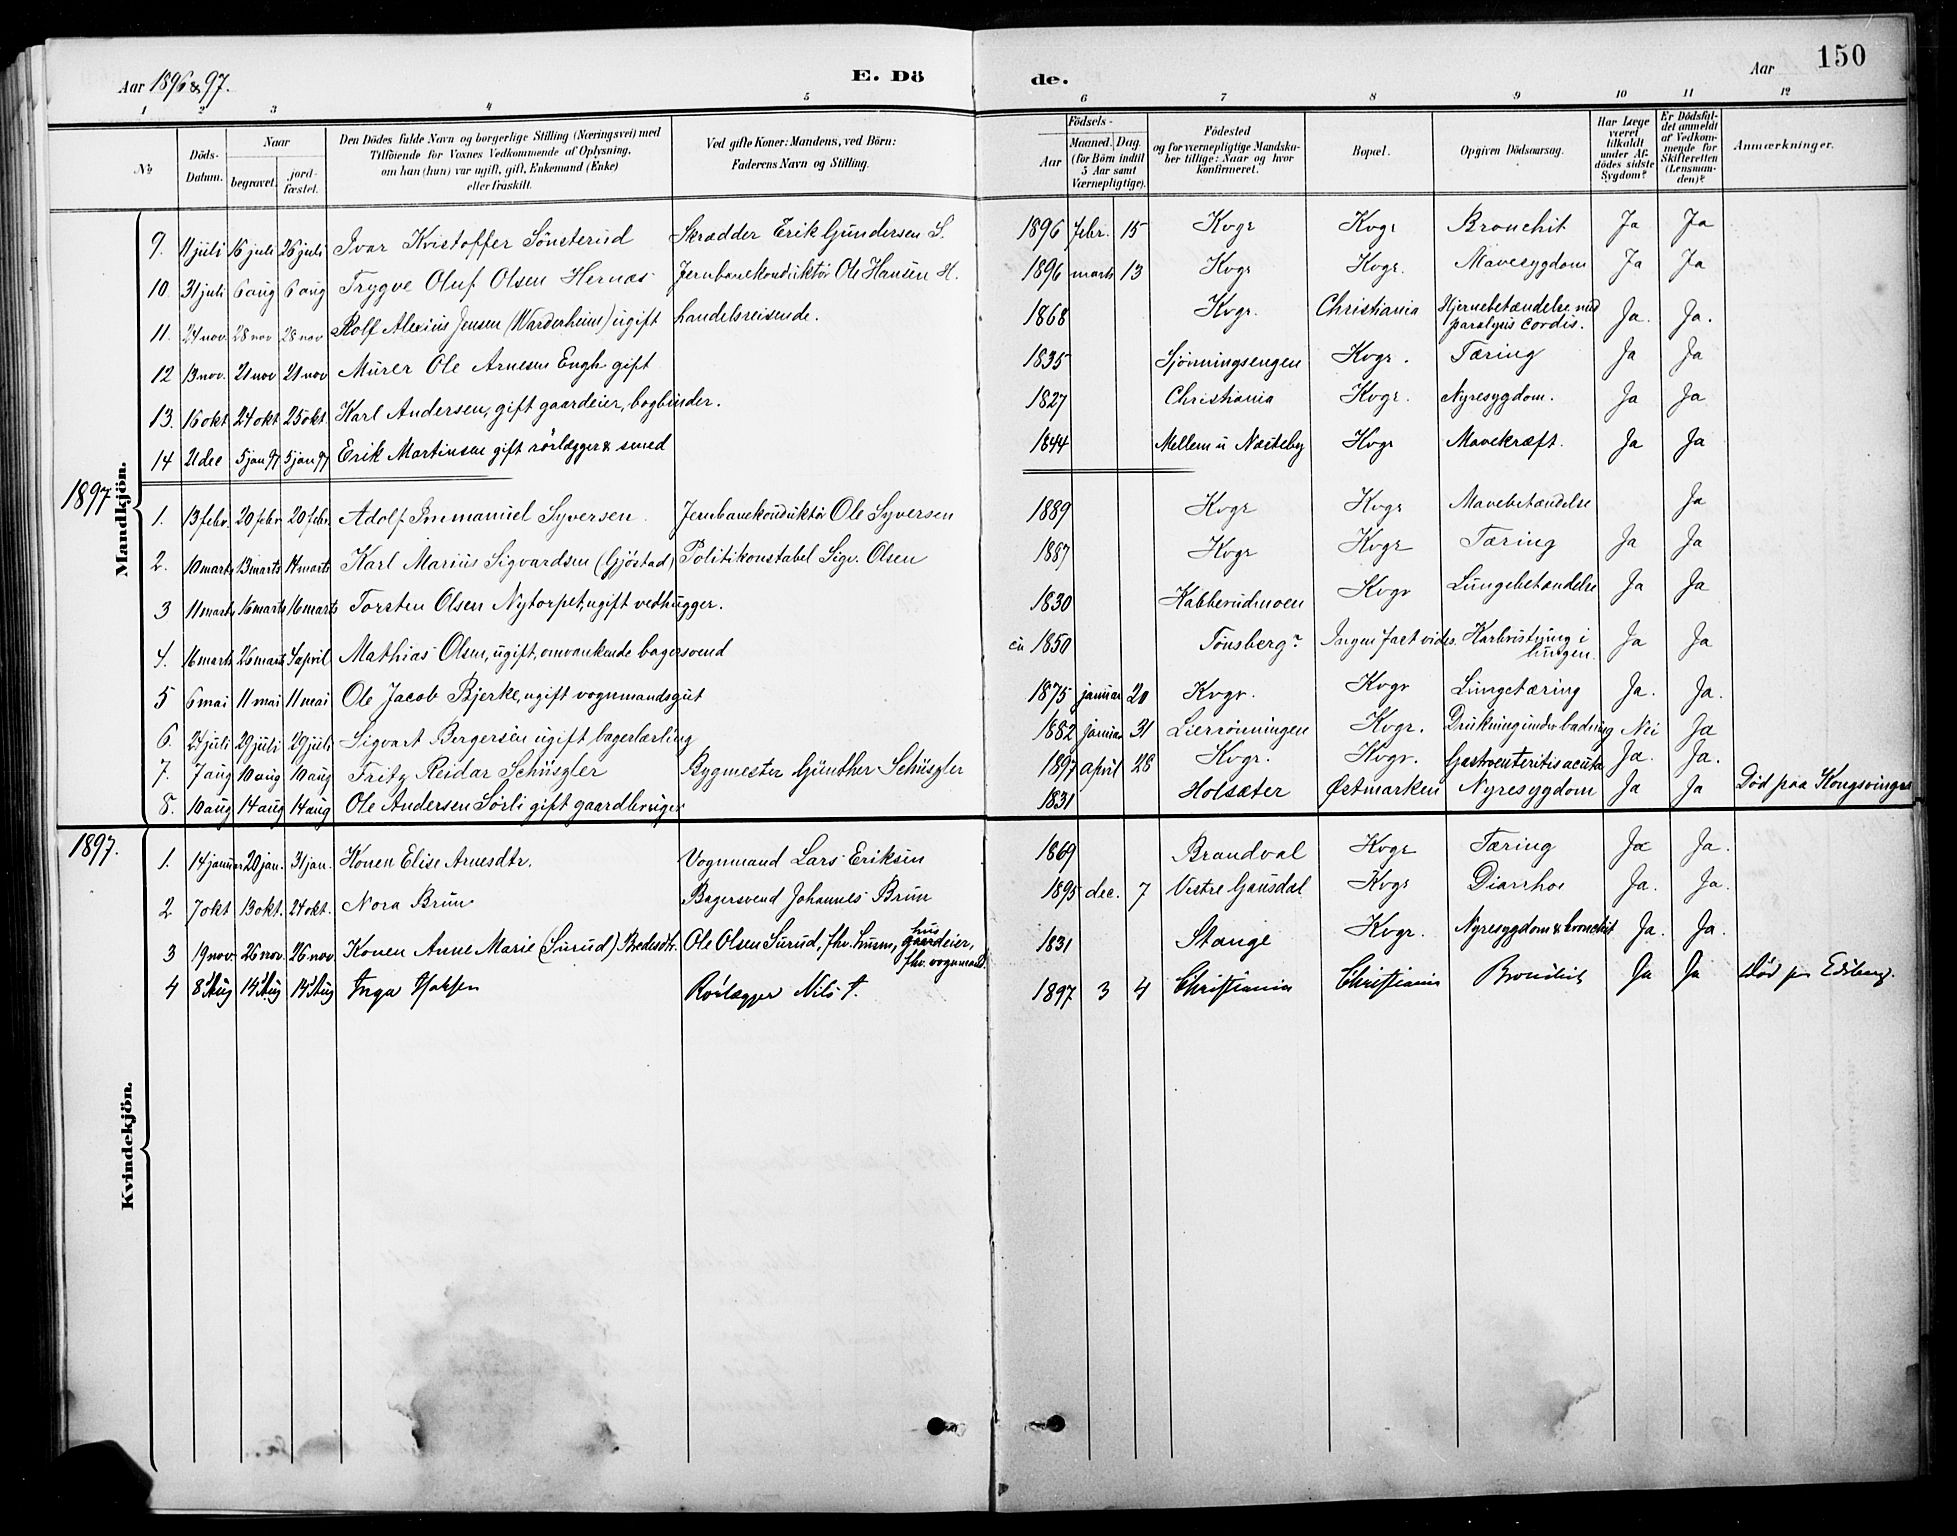 150
Aar 1896 & 97.
E. Dö
de.
Aar
1 2 3 4 5 6 7 8 9 10 11 12
No
Döds-Datum.
Naar
begravet.
jord-fæstet.
Den Dödes fulde Navn og borgerlige Stilling (Næringsvei) med
Tilföiende for Voxnes Vedkommende af Oplysning,
om han (hun) var ugift, gift, Enkemand (Enke)
eller fraskilt.
Ved gifte Koner: Mandens, ved Börn:
Faderens Navn og Stilling.
Födsels-
Aar
Maaned. Dag.
(for Börn indtil
5 Aar samt
Værnepligtige).
Födested
og for værnepligtige Mandsku-
ber tillige: Naar og hvor
konfirmeret.
Bopæl.
Opgiven Dödsaarsag.
Har Læge
været
tilkaldt
under Af-
dödes sidste
Sygdom?
Er Dödsfal-
det anmeldt
af Vedkom-
mende for
Skifteretten
(Lensman-
den)?
Anmærkninger.
Mandkjön.
9. 11 juli 16 juli 26 juli Ivar Kristoffer Sönsterud Skrædder Erik Gundersen S. 1896 febr. 15 Kvgr Kvgr Bronchit Ja Ja
10. 31 juli 6 aug 6 aug Trygve Oluf Olsen Hernæs Jernbanekonduktör Ole Hansen H. 1896 marts 13 Kvgr Kvgr. Mavesygdom Ja Ja
11. 24 nov 28 nov 28 nov Rolf Alexius Jensen (Warderheim) ugift handelsreisende. 1868 Kvgr. Christiania Hjernebetændelse med paralysis cordis. Ja. Ja.
12 13 nov. 21 nov 21 nov Murer Ole Arnesen Engh gift 1835 Sjönningsengen Kvgr. Tæring Ja Ja
13. 16 okt 24 okt 25 okt. Karl Andersen, gift gaardeier, bogbinder. 1827 Christiania Kvgr. Nyresygdom. Ja Ja
14 21 dec 5 jan 97 5 jan 97 Erik Martinsen gift rörlægger & smed 1844 Mellem u Næsteby Kvgr Mavekræft. Ja Ja
1897
1. 13 febr. 20 febr. 20 febr. Adolf Immanuel Syversen. Jernbanekonduktör Ole Syversen 1889 Kvgr Kvgr Mavebetændelse Ja
2. 10 marts 13 marts 14 marts Karl Marius Sigvardsen (Gjöstad) Politikonstabel Sigv. Olsen 1887 Kvgr Kvgr Tæring Ja Ja
3 11 marts 16 marts 16 marts Torsten Olsen Nytorpet, ugift vedhugger. 1830 Kabberudmoen Kvgr Lungebetændelse Ja Ja
4. 16 marts 26 marts 4 april Mathias Olsen, ugift, omvankende bagersvend ca 1850 Tönsberg? Ingen fast vides. Karbristning i lungen. Ja Ja
5 6 mai 11 mai 11 mai Ole Jacob Bjerke, ugift vognmandsgut 1875 januar 20 Kvgr. Kvgr Lungetæring Ja. Ja.
6. 24 juli 29 juli 29 juli Sigvart Bergersen ugift bagerlærling 1882 januar 31 Lierrönningen Kvgr. Drukning under badning Nei Ja
7. 7 aug 10 aug 10 aug Fritz Reidar Schüszler Bygmester Günther Schüszler 1897 april 28 Kvgr. Kvgr. Gastroenteritis acuta Ja. Ja.
8. 10 aug 14 aug 14 aug Ole Andersen Sörli gift gaardbruger 1831 Holsæter Østmarken Nyresygdom Ja Ja Död paa Kongsvinger
1897.
Kvindekjön.
1. 14 januar 20 jan. 31 jan. Konen Elise Arnesdtr. Vognmand Lars Eriksen 1869 Brandval Kvgr Tæring Ja Ja.
2 7 okt 13 okt. 24 okt. Nora Brun Bagersvend Johannes Brun 1895 dec. 7 Vestre Gausdal Kvgr Diarrhoe Ja. Ja.
3 19 nov. 26 nov. 26 nov Konen Anne Marie (Surud) Pedersdtr. Ole Olsen Surud, fhv. husm, gaardeier, hus fhv. vognmand. 1831 Stange Kvgr. Nyresygdom & bronchit Ja. Ja.
4 8 Aug 14 Aug 14 Aug Inga Rörlægger Nils 1897 3 4 Christiania Christiania Bronchit Ja Ja Död paa